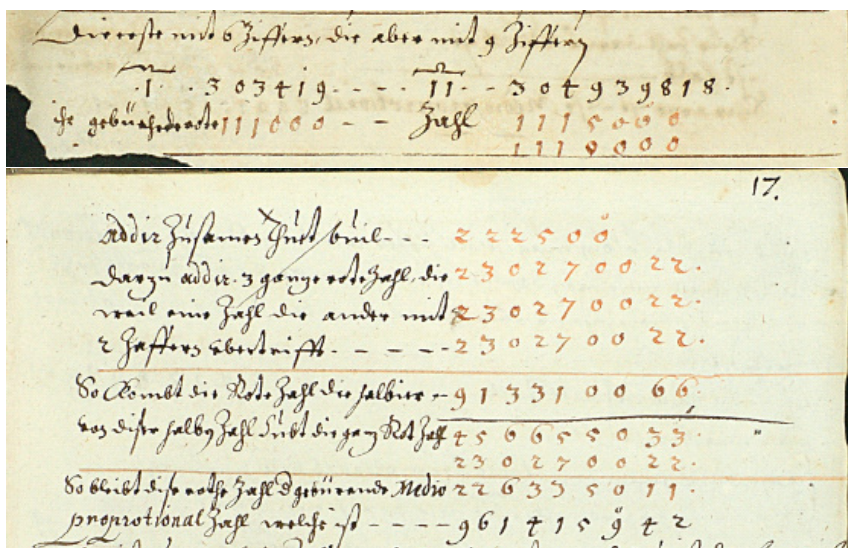 Die erste mit 6 Ziffern, die aber mit 9 Ziffern
I. 303419 - - - - II - - 304939818.
ihr gebührende rote 111000 - - Zahl 1115000
1115000
17.
addir Zusamen thut - - - 222500
darzu addir. 3 gantze rote Zahl, die 230270022.
weil eine Zahl die ander mit 230270022.
2 Zaffern vbertrifft - - - - 230270022.
So Kombt die Rote Zahl die halbier - 913310066
von diser halben Zahl die gantz Rot Zahl 456655033
230270022.
So bleibt dise rothe Zahl d gebürende Medio 226335011
proprotional Zahl welche ist - - - - 961415942